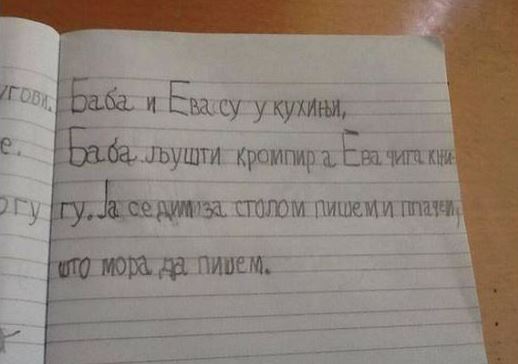 угови. Баба и Ева су у кухињи,
е. Баба љушти кромпир а Ева чита књи-
огу гу. Ја седим за столом пишем и плачем,
што мора да пишем.